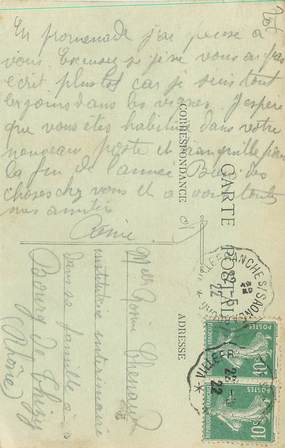 En promenade j'ai pensé à
vous Excusez si je ne vous ai pas
écrit plus tot car je suis tout
les jours dans les vignes. J'espère
que vous êtes habituée dans votre
nouveau poste et tranquille pour
la fin de l'année. Bien des
choses chez vous et a vous toutes
nos amitiés
CORRESPONDANCE
CARTE POSTALE
ADRESSE
Melle
institutrice intérimaire
dans sa famille à
Bourg de Thizy
(Rhône)
VILLEFRANCHE S/SAONE
22
POSTES
10c
POSTES
10c